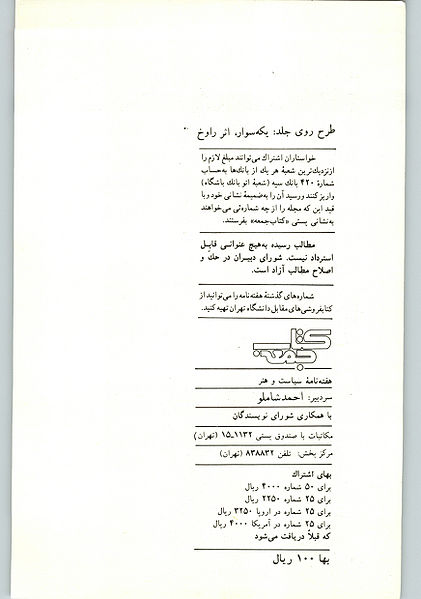 طرح روی جلد: یکه‌سوار، اثر راوخ
خواستاران اشتراك می‌توانند مبلغ لازم را
ازنزدیك‌ترین شعبهٔ هر یك از بانك‌ها به‌حساب
شمارهٔ ۴۲۰ بانك سپه (شعبهٔ اتو بانك باشگاه)
واریز کنند ورسید آن را به‌ضمیمهٔ نشانی خود وبا
قید این که مجله را از چه شماره‌ئی می‌خواهند
به‌نشانی پستی «کتاب‌جمعه» بفرستند.
مطالب رسیده به‌هیچ عنوانی قابل
استرداد نیست. شورای دبیران در حك و
اصلاح مطالب آزاد است.
شماره‌های گذشتهٔ هفته‌نامه را می‌توانید از
کتابفروشی‌های مقابل دانشگاه تهران تهیه کنید.
کتاب
جمعه
هفته‌نامهٔ سیاست و هنر
سردبیر: احمد شاملو
با همکاری شورای نویسندگان
مکاتبات با صندوق پستی ۱۱۳۲-۱۵ (تهران)
مرکز پخش: تلفن ۸۳۸۸۳۲ (تهران)
بهای اشتراك
برای ۵۰ شماره ۴۰۰۰ ریال
برای ۲۵ شماره ۲۲۵۰ ریال
برای ۲۵ شماره در اروپا ۳۲۵۰ ریال
برای ۲۵ شماره در آمریکا ۴۰۰۰ ریال
که قبلاً دریافت می‌شود
بها ۱۰۰ ریال